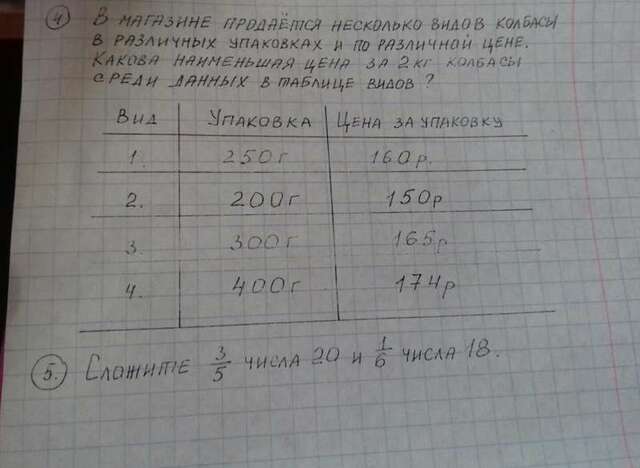 4 В МАГАЗИНЕ ПРОДАЁТСЯ НЕСКОЛЬКО ВИДОВ КОЛБАСЫ
В РАЗЛИЧНЫХ УПАКОВКАХ И ПО РАЗЛИЧНОЙ ЦЕНЕ.
КАКОВА НАИМЕНЬШАЯ ЦЕНА ЗА 2 КГ КОЛБАСЫ
СРЕДИ ДАННЫХ В ТАБЛИЦЕ ВИДОВ?
ВИД УПАКОВКА ЦЕНА ЗА УПАКОВКУ
1. 250 г 160 р.
2. 200 г 150 р
3. 300 г 165 р
4. 400 г 174 р
5. СЛОЖИТЕ 3/5 ЧИСЛА 20 И 1/6 ЧИСЛА 18.